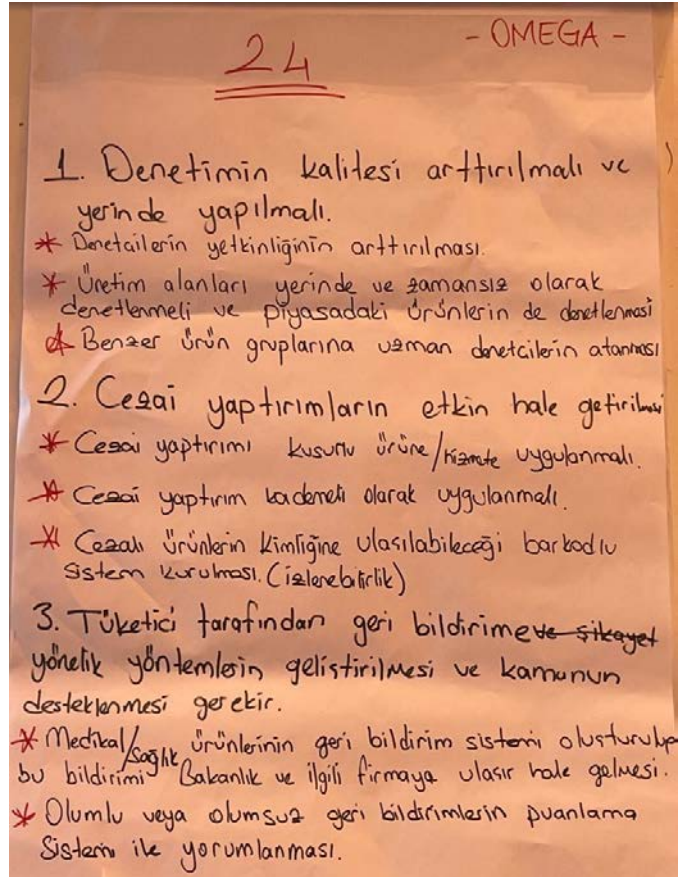 - OMEGA -
24
1. Denetimin kalitesi arttırılmalı ve
yerinde yapılmalı.
* Denetcilerin yetkinliğinin arttırılması.
* Üretim alanları yerinde ve zamansız olarak
denetlenmeli ve piyasadaki ürünlerin de denetlenmesi
* Benzer ürün gruplarına uzman denetcilerin atanması
2. Cezai yaptırımların etkin hale getirilmesi
* Cezai yaptırımı kusurlu ürüne/hizmete uygulanmalı.
* Cezai yaptırım kademeli olarak uygulanmalı.
* Cezalı ürünlerin kimliğine ulaşılabileceği barkodlu
sistem kurulması. (izlenebilirlik)
3. Tüketici tarafından geri bildirime ve şikayet
yönelik yöntemlerin geliştirilmesi ve kamunun
desteklenmesi gerekir.
* Medikal/Sağlık ürünlerinin geri bildirim sistemi oluşturulup
bu bildirimi Bakanlık ve ilgili firmaya ulaşır hale gelmesi.
* Olumlu veya olumsuz geri bildirimlerin puanlama
Sistemi ile yorumlanması.